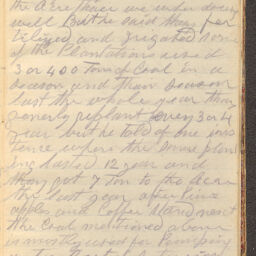 the Acre there are who does
well But he said they fer
tilized and Irigated some
of the Plantations used
3 or 400 Tons of Coal in a
season and their season
last the whole year they
generly replant every 3 or 4
year but he told of one ins
tence where the same plan
ing lasted 12 year and
they got 7 Ton to the Acre
the last year after Pine
apples and Coffee stand next
the Coal mentioned above
is mostly used for Pumping